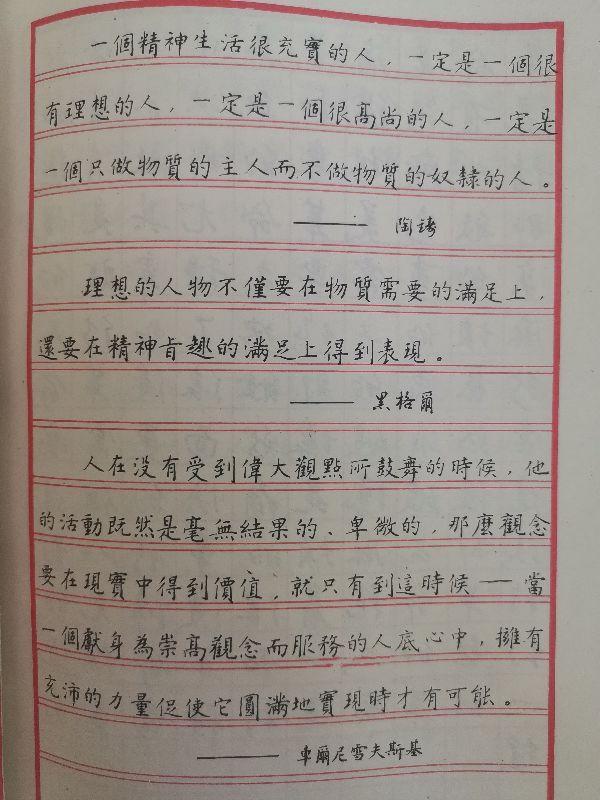 一個精神生活很充實的人，一定是一個很
有理想的人，一定是一個很高尚的人，一定是
一個只做物質的主人而不做物質的奴隸的人。
—— 陶鑄
理想的人物不僅要在物質需要的滿足上，
還要在精神旨趣的滿足上得到表現。
—— 黑格爾
人在没有受到偉大觀點所鼓舞的時候，他
的活動既然是毫無結果的、卑微的，那麼觀念
要在現實中得到價值，就只有到這時候——當
一個獻身為崇高觀念而服務的人底心中，擁有
充沛的力量促使它圓滿地實現時才有可能。
—— 車爾尼雪夫斯基